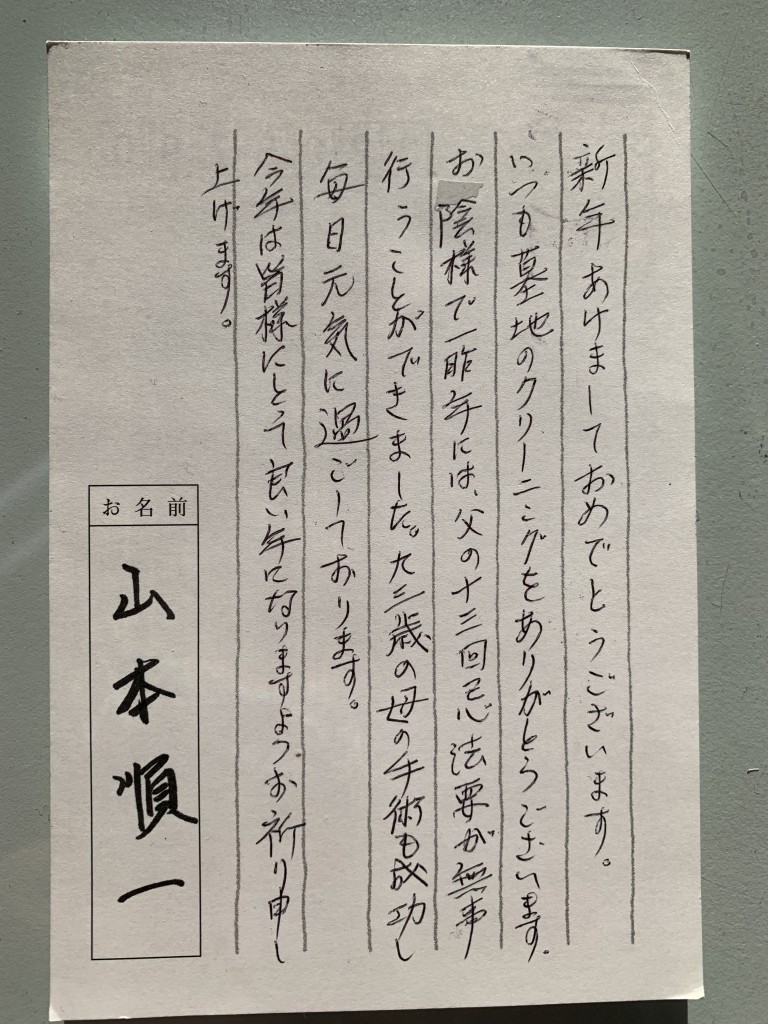 新年あけましておめでとうございます。
いつも墓地のクリーニングをありがとうございます。
お陰様で一昨年には、父の十三回忌法要が無事
行うことができました。九三歳の母の手術も成功し
毎日元気に過ごしております。
今年は皆様にとって良い年になりますようお祈り申し
上げます。
お名前
山本順一